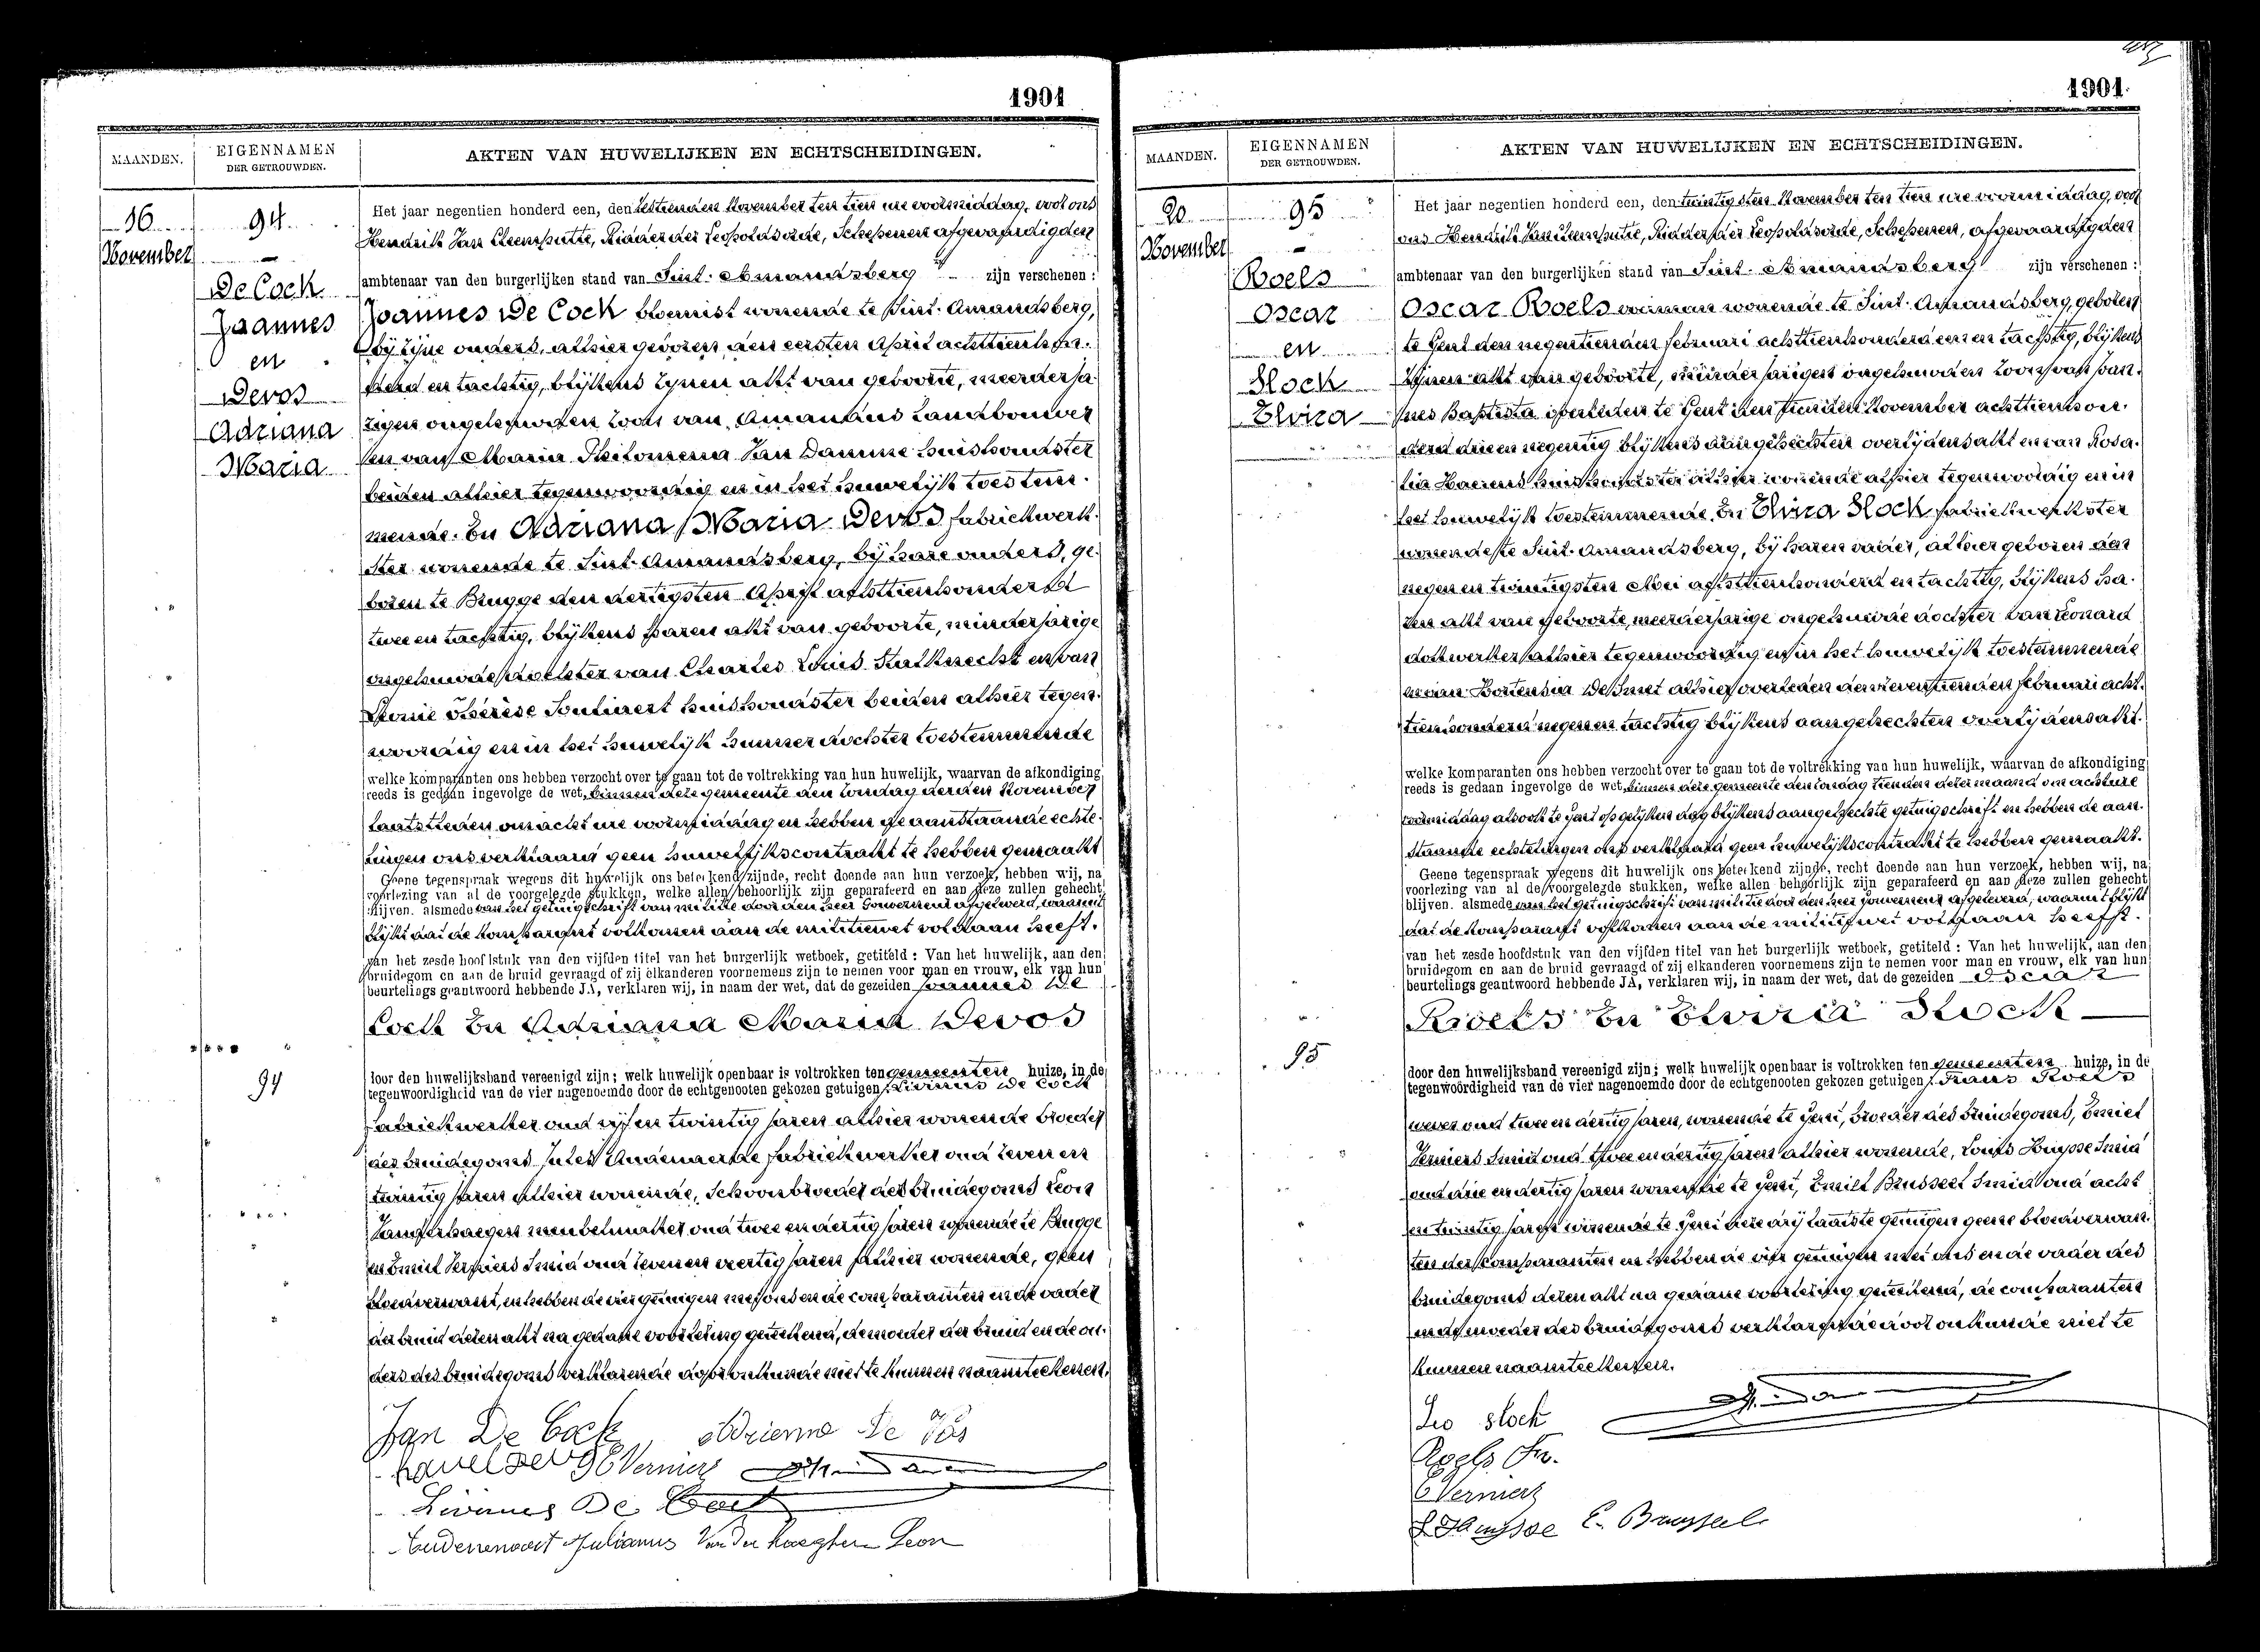 1901
MAANDEN.
EIGENNAMEN
DER GETROUWDEN.
AKTEN VAN HUWELIJKEN EN ECHTSCHEIDINGEN.
16
November
94
De Cock
Joannes
en
Devos
Adriana
Maria
Het jaar negentien honderd een, den zestienden November ten tien ure voormiddag, voor ons
Hendrik Van Cleemputte, Ridder der Leopoldsorde, Schepenen afgevaardigden
ambtenaar van den burgerlijken stand van Sint-Amandsberg zijn verschenen :
Joannes De Cock bloemist wonende te Sint-Amandsberg,
bij zijne ouders, alhier geboren den eersten April achttienhon-
derd en tachtig, blijkens zynen akt van geboorte, meerderja-
rigen ongehuwden zoon van Amandus Landbouwer
en van Maria Philomena Van Damme huishoudster
beiden alhier tegenwoordig en in het huwelijk toestem-
mende. En Adriana Maria Devos fabriekwerk-
ster wonende te Sint-Amandsberg, bij hare ouders, ge-
boren te Brugge den dertigsten April achttienhonderd
twee en tachtig, blijkens haren akt van geboorte, minderjarige
ongehuwde dochter van Charles Louis Stalknecht en van
Thérèse huishoudster beiden alhier tegen-
woordig en in het huwelijk hunner dochter toestemmende
welke komparanten ons hebben verzocht over te gaan tot de voltrekking van hun huwelijk, waarvan de afkondiging
reeds is gedaan ingevolge de wet, binnen deze gemeente den zondag derden November
laatstleden om acht ure voormiddag en hebben de aanstaande echte-
lingen ons verklaard geen huwelijkscontrakt te hebben gemaakt
Geene tegenspraak wegens dit huwelijk ons beteekend zijnde, recht doende aan hun verzoek, hebben wij, na
voorlezing van al de voorgelegde stukken, welke allen behoorlijk zijn geparafeerd en aan deze zullen gehecht
blijven. alsmede van het getuigschrift van militie door den heer Gouverneur afgeleverd, waaruit
blijkt dat de komparant volkomen aan de militiewet voldaan heeft.
van het zesde hoofdstuk van den vijfden titel van het burgerlijk wetboek, getiteld : Van het huwelijk, aan den
bruidegom en aan de bruid gevraagd of zij elkanderen voornemens zijn te nemen voor man en vrouw, elk van hun
beurtelings geantwoord hebbende JA, verklaren wij, in naam der wet, dat de gezeiden Joannes De
Cock En Adriana Maria Devos
94
door den huwelijksband vereenigd zijn; welk huwelijk openbaar is voltrokken ten gemeenten huize, in de
tegenwoordigheid van de vier nagenoemde door de echtgenooten gekozen getuigen : Livinus De Cock
fabriekwerker oud vijf en twintig jaren alhier wonende broeder
des bruidegoms Jules fabriekwerker oud zeven en
twintig jaren alhier wonende, Schoonbroeder des bruidegoms Leon
Vanderhaegen meubelmaker oud twee en dertig jaren wonende te Brugge
en Emiel Verniers Smid oud zeven en veertig jaren alhier wonende, geen
bloedverwant, en hebben de vier getuigen met ons en de comparanten en de vader
der bruid dezen akt na gedane voorlezing geteekend, de moeder der bruid en de ou-
ders des bruidegoms verklarende door onkunde niet te kunnen naamteekenen.
Jan De Cock Adrienne De Vos
E Vernier
Livinus De Cock
Julianus Van der haeghen Leon
1901.
MAANDEN.
EIGENNAMEN
DER GETROUWDEN.
AKTEN VAN HUWELIJKEN EN ECHTSCHEIDINGEN.
20
November
95
Roels
Oscar
en
Slock
Elvira
Het jaar negentien honderd een, den twintigsten November ten tien ure voormiddag, voor
ons Hendrik Van Cleemputte, Ridder der Leopoldsorde, Schepenen, afgevaardigden
ambtenaar van den burgerlijken stand van Sint-Amandsberg zijn verschenen :
Oscar Roels wonende te Sint-Amandsberg, geboren
te Gent den negentienden februari achttienhonderd een en tachtig, blijkens
zijnen akt van geboorte, minderjarigen ongehuwden zoon van Joan-
nes Baptista overleden te Gent den tienden November achttienhon-
derd drie en negentig blijkens aangehechten overlydensakt en van Rosa-
lia Haerens huishoudster alhier wonende alhier tegenwoordig en in
het huwelijk toestemmende. En Elvira Slock fabriekwerkster
wonende te Sint-Amandsberg, bij haren vader, alhier geboren den
negen en twintigsten Mei achttienhonderd en tachtig, blijkens ha-
ren akt van geboorte, meerderjarige ongehuwde dochter van Leonard
dokwerker alhier tegenwoordig en in het huwelijk toestemmende
en van Hortensia De Smet alhier overleden den februari acht-
tienhonderd negen en tachtig blijkens aangehechten overlijdensakt.
welke komparanten ons hebben verzocht over te gaan tot de voltrekking van hun huwelijk, waarvan de afkondiging
reeds is gedaan ingevolge de wet, binnen deze gemeente den zondag tienden dezer maand om acht ure
voormiddag alsook te Gent op gelijken dag blijkens aangehechte getuigschrift en hebben de aan-
staande echtelingen ons verklaard geen huwelijkscontrakt te hebben gemaakt.
Geene tegenspraak wegens dit huwelijk ons beteekend zijnde, recht doende aan hun verzoek, hebben wij, na
voorlezing van al de voorgelegde stukken, welke allen behoorlijk zijn geparafeerd en aan deze zullen gehecht
blijven. alsmede van het getuigschrift van militie door den heer Gouverneur afgeleverd, waaruit blijkt
dat de komparant volkomen aan de militiewet voldaan heeft.
van het zesde hoofdstuk van den vijfden titel van het burgerlijk wetboek, getiteld : Van het huwelijk, aan den
bruidegom en aan de bruid gevraagd of zij elkanderen voornemens zijn te nemen voor man en vrouw, elk van hun
beurtelings geantwoord hebbende JA, verklaren wij, in naam der wet, dat de gezeiden Oscar
Roels En Elvira Slock
95
door den huwelijksband vereenigd zijn; welk huwelijk openbaar is voltrokken ten gemeenten huize, in de
tegenwoordigheid van de vier nagenoemde door de echtgenooten gekozen getuigen : Frans Roels
wever oud twee en dertig jaren, wonende te Gent, broeder des bruidegoms, Emiel
Verniers Smid oud twee en dertig jaren alhier wonende, Louis Huysse Smid
oud drie en dertig jaren wonende te Gent, Emiel Brusseel Smid oud acht
en twintig jaren wonende te Gent deze drij laatste getuigen geene bloedverwan-
ten der komparanten en hebben de vier getuigen met ons en de vader des
bruidegoms dezen akt na gedane voorlezing geteekend, de comparanten
en de moeder des bruidegoms verklarende door onkunde niet te
kunnen naamteekenen.
Leo Slock
Roels Fr.
E Verniers
L Huysse E. Brusseel